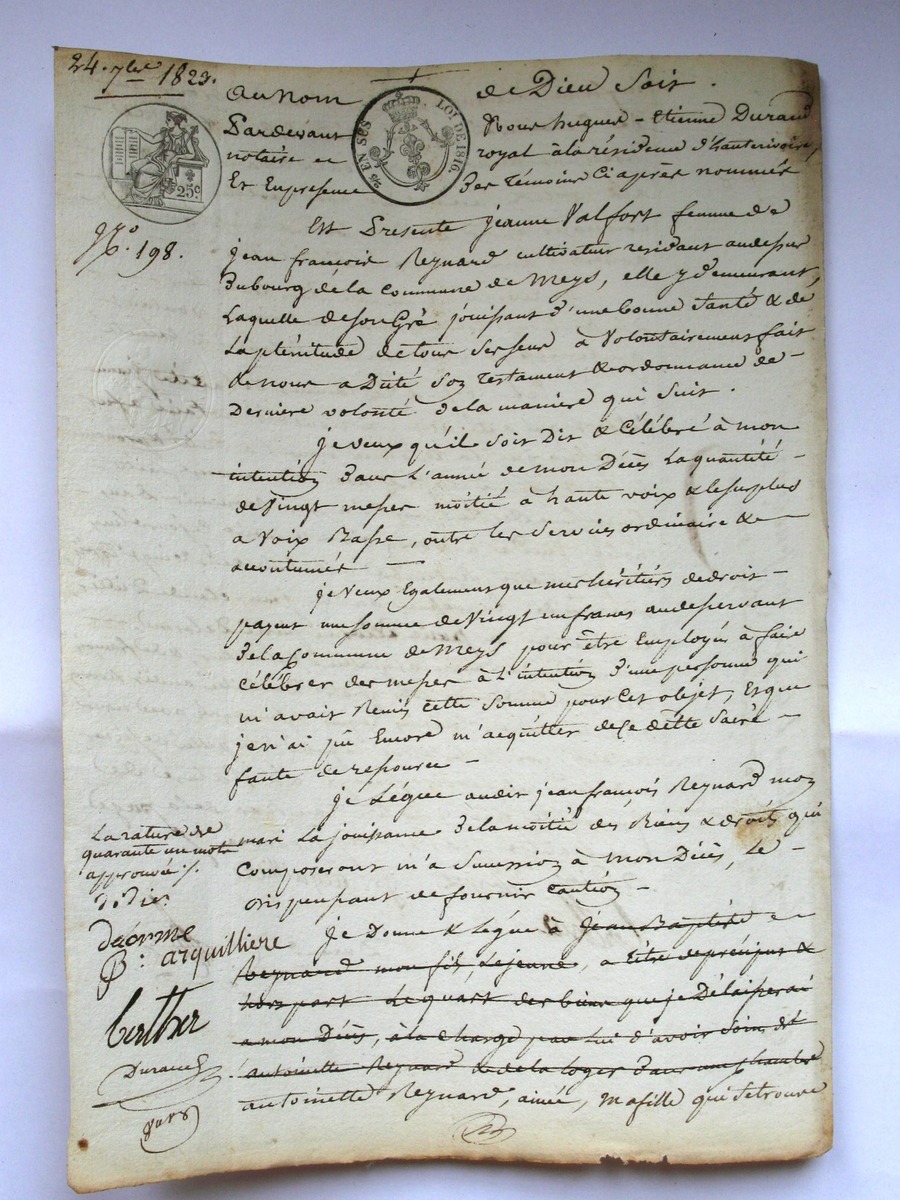 24. 7bre 1823.
au nom de Dieu Soit.
Pardevant Nous hugues - Etienne Durand
notaire et royal à la résidence d'hauterivoire,
Et En presence Des Témoins Ci après nommés
EN SUS
LOI DE 1816.
25 c
N.° 198.
Est Presente jeanne Valfort femme de
jean françois Reynard cultivateur residant audessus
Du bourg de la Commune de Meys, elle y demeurant,
Laquelle de son Gré jouissant d'une bonne Santé & de
La plénitude de tous Ses sens à Volontairement fait
& nous a Dicté Son Testament & ordonnance de
Derniere volonté de la maniere qui Suit.
je veux qu'il Soit Dit & Célébré à mon
intention Dans L'année de mon Décès La quantité
de Vingt messes moitié à haute voix & le surplus
a Voix Basse, outre les Services ordinaires &
accoutumés
je Veux Egalement que mes héritiers de droit
payent une Somme de Vingt un francs au desservant
De la Commune de Meys pour être Employés à faire
Célébrer des messes à L'intention D'une personne qui
m'avait Remis Cette Somme pour Cet objet, Et que
je n'ai pû Encore m'acquitter de Ce dette Sacré
faute de ressource
je Légue audit jean françois Reynard mon
mari La jouissance De la moitié des Biens & droits qui
Composeront m'a Succession à mon Décès, Le
dispensant de fournir Caution
je Donne & Légue à jean Baptiste
Reynard mon fils, Le jeune, a titre de préciput &
hors part Le quart des biens que je Délaisserai
a mon Décès, à la Charge par Lui d'avoir Soin de
antoinette Reynard & de la loger Dans une chambre
antoinette Reynard, ainée, Ma fille qui Se trouve
La rature de
quarante un mots
approuvée ./.
Decorme
B. arquilliere
Berther
Durand